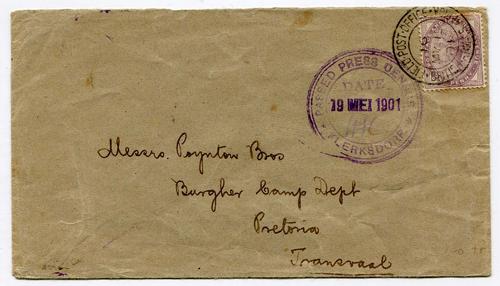 FIELD POST OFFICE
PASSED PRESS CENSOR
DATE
19 MEI 1901
KLERKSDORP
Messrs. Poynton Bros
Burgher Camp Dept
Pretoria
Transvaal